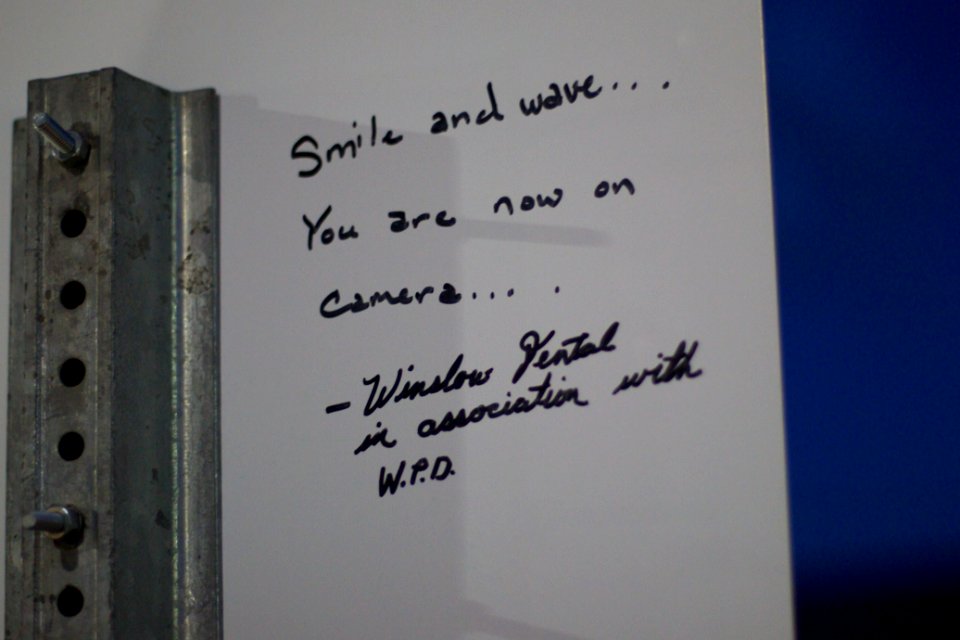 Smile and wave...
You are now on
camera.... 
- Winslow Dental
in association with
W.P.D.